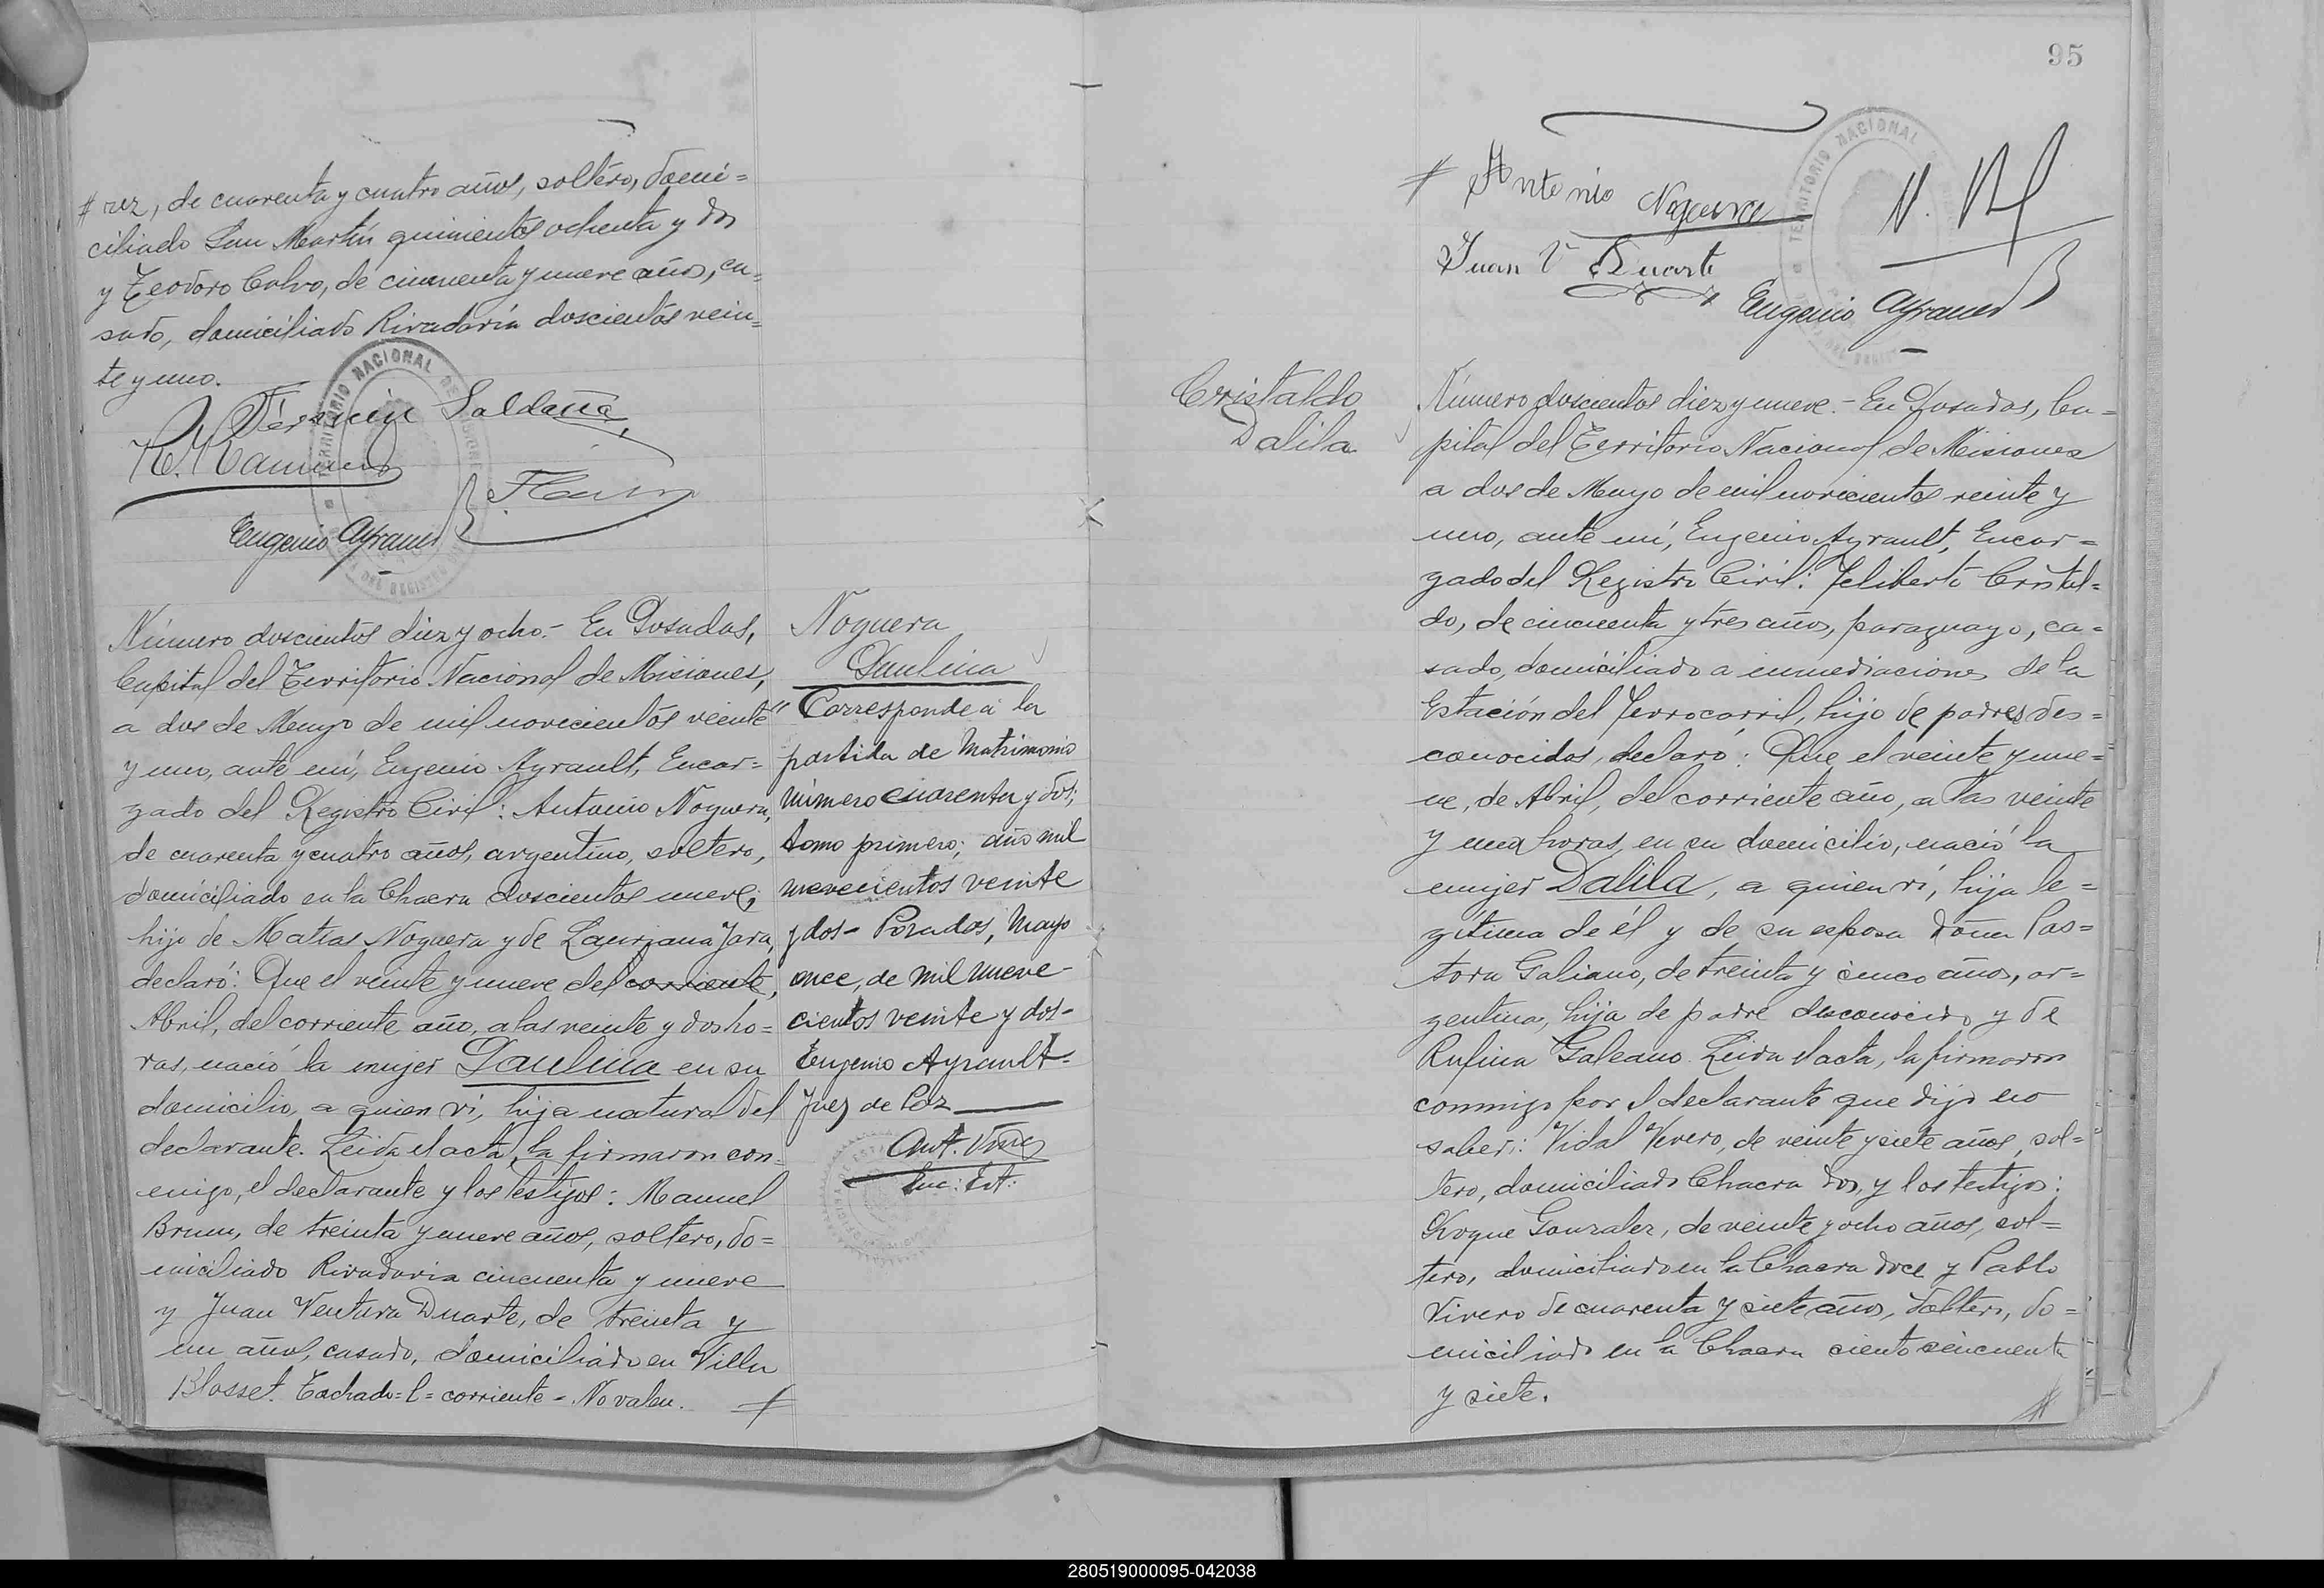 # rez, de cuarenta y cuatro años, soltero, domi=
ciliado San Martín quinientos ochenta y dos
y Teodoro Calvo, de cincuenta y nueve años, ca=
sado, domiciliado Rivadavia doscientos vein=
te y uno.
Fermín Saldaña
Eugenio Ayrault
TERRITORIO NACIONAL DE MISIONES
Número doscientos diez y ocho.- En Posadas,
Capital del Territorio Nacional de Misiones,
a dos de Mayo de mil novecientos veinte
y uno, ante mí, Eugenio Ayrault, Encar=
gado del Registro Civil: Antonio Noguera,
de cuarenta y cuatro años, argentino, soltero,
domiciliado en la Chacra doscientos nueve;
hijo de Matías Noguera y de Laureana Jara,
declaró: Que el veinte y nueve del corriente,
Abril, del corriente año, a las veinte y dos ho=
ras, nació la mujer Paulina en su
domicilio, a quien ví, hija natural del
declarante. Leida el acta, la firmaron con=
migo, el declarante y los testigos: Manuel
Brum, de treinta y nueve años, soltero, do=
miciliado Rivadavia cincuenta y nueve
y Juan Ventura Duarte, de treinta y
un años, casado, domiciliado en Villa
Blosset. Tachado=l=corriente=No valen. #
Noguera
Paulina
Corresponde a la
partida de Matrimonio
número cuarenta y dos;
tomo primero; año mil
novecientos veinte
y dos- Posadas, Mayo
once, de mil nueve-
cientos veinte y dos-
Eugenio Ayrault-
Juez de Paz
Enc: Est:
95
# Antonio Noguera
Juan V Duarte
Eugenio Ayrault
TERRITORIO NACIONAL
Cristaldo
Dalila
Número doscientos diez y nueve.- En Posadas, Ca=
pital del Territorio Nacional de Misiones
a dos de Mayo de mil novecientos veinte y
uno, ante mí, Eugenio Ayrault, Encar=
gado del Registro Civil: Feliberto Cristal=
do, de cincuenta y tres años, paraguayo, ca=
sado, domiciliado a inmediaciones de la
Estación del Ferrocarril, hijo de padres des=
conocidos, declaró: Que el veinte y nue=
ve, de Abril, del corriente año, a las veinte
y una horas, en su domicilio, nació la
mujer Dalila, a quien ví, hija le=
gítima de él y de su esposa doña Pas=
tora Galiano, de treinta y cinco años, ar=
gentina, hija de padre desconocido y de
Rufina Galeano. Leida el acta, la firmaron
conmigo por el declarante que dijo no
saber: Vidal Vivero, de veinte y siete años, sol=
tero, domiciliado Chacra dos, y los testigos:
Roque Gonzalez, de veinte y ocho años, sol=
tero, domiciliado en la Chacra doce y Pablo
Vivero de cuarenta y siete años, soltero, do=
miciliado en la Chacra ciento cincuenta
y siete. #
280519000095-042038